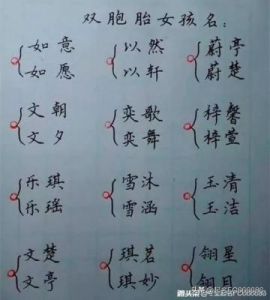 双胞胎女孩名:
如意 以然 蔚亭
如愿 以轩 蔚楚
文朝 奕歌 梓馨
文夕 奕舞 梓萱
乐琪 雪沐 玉清
乐瑶 雪涵 玉洁
文楚 琪茗 翎星
文亭 琪妙 翎月